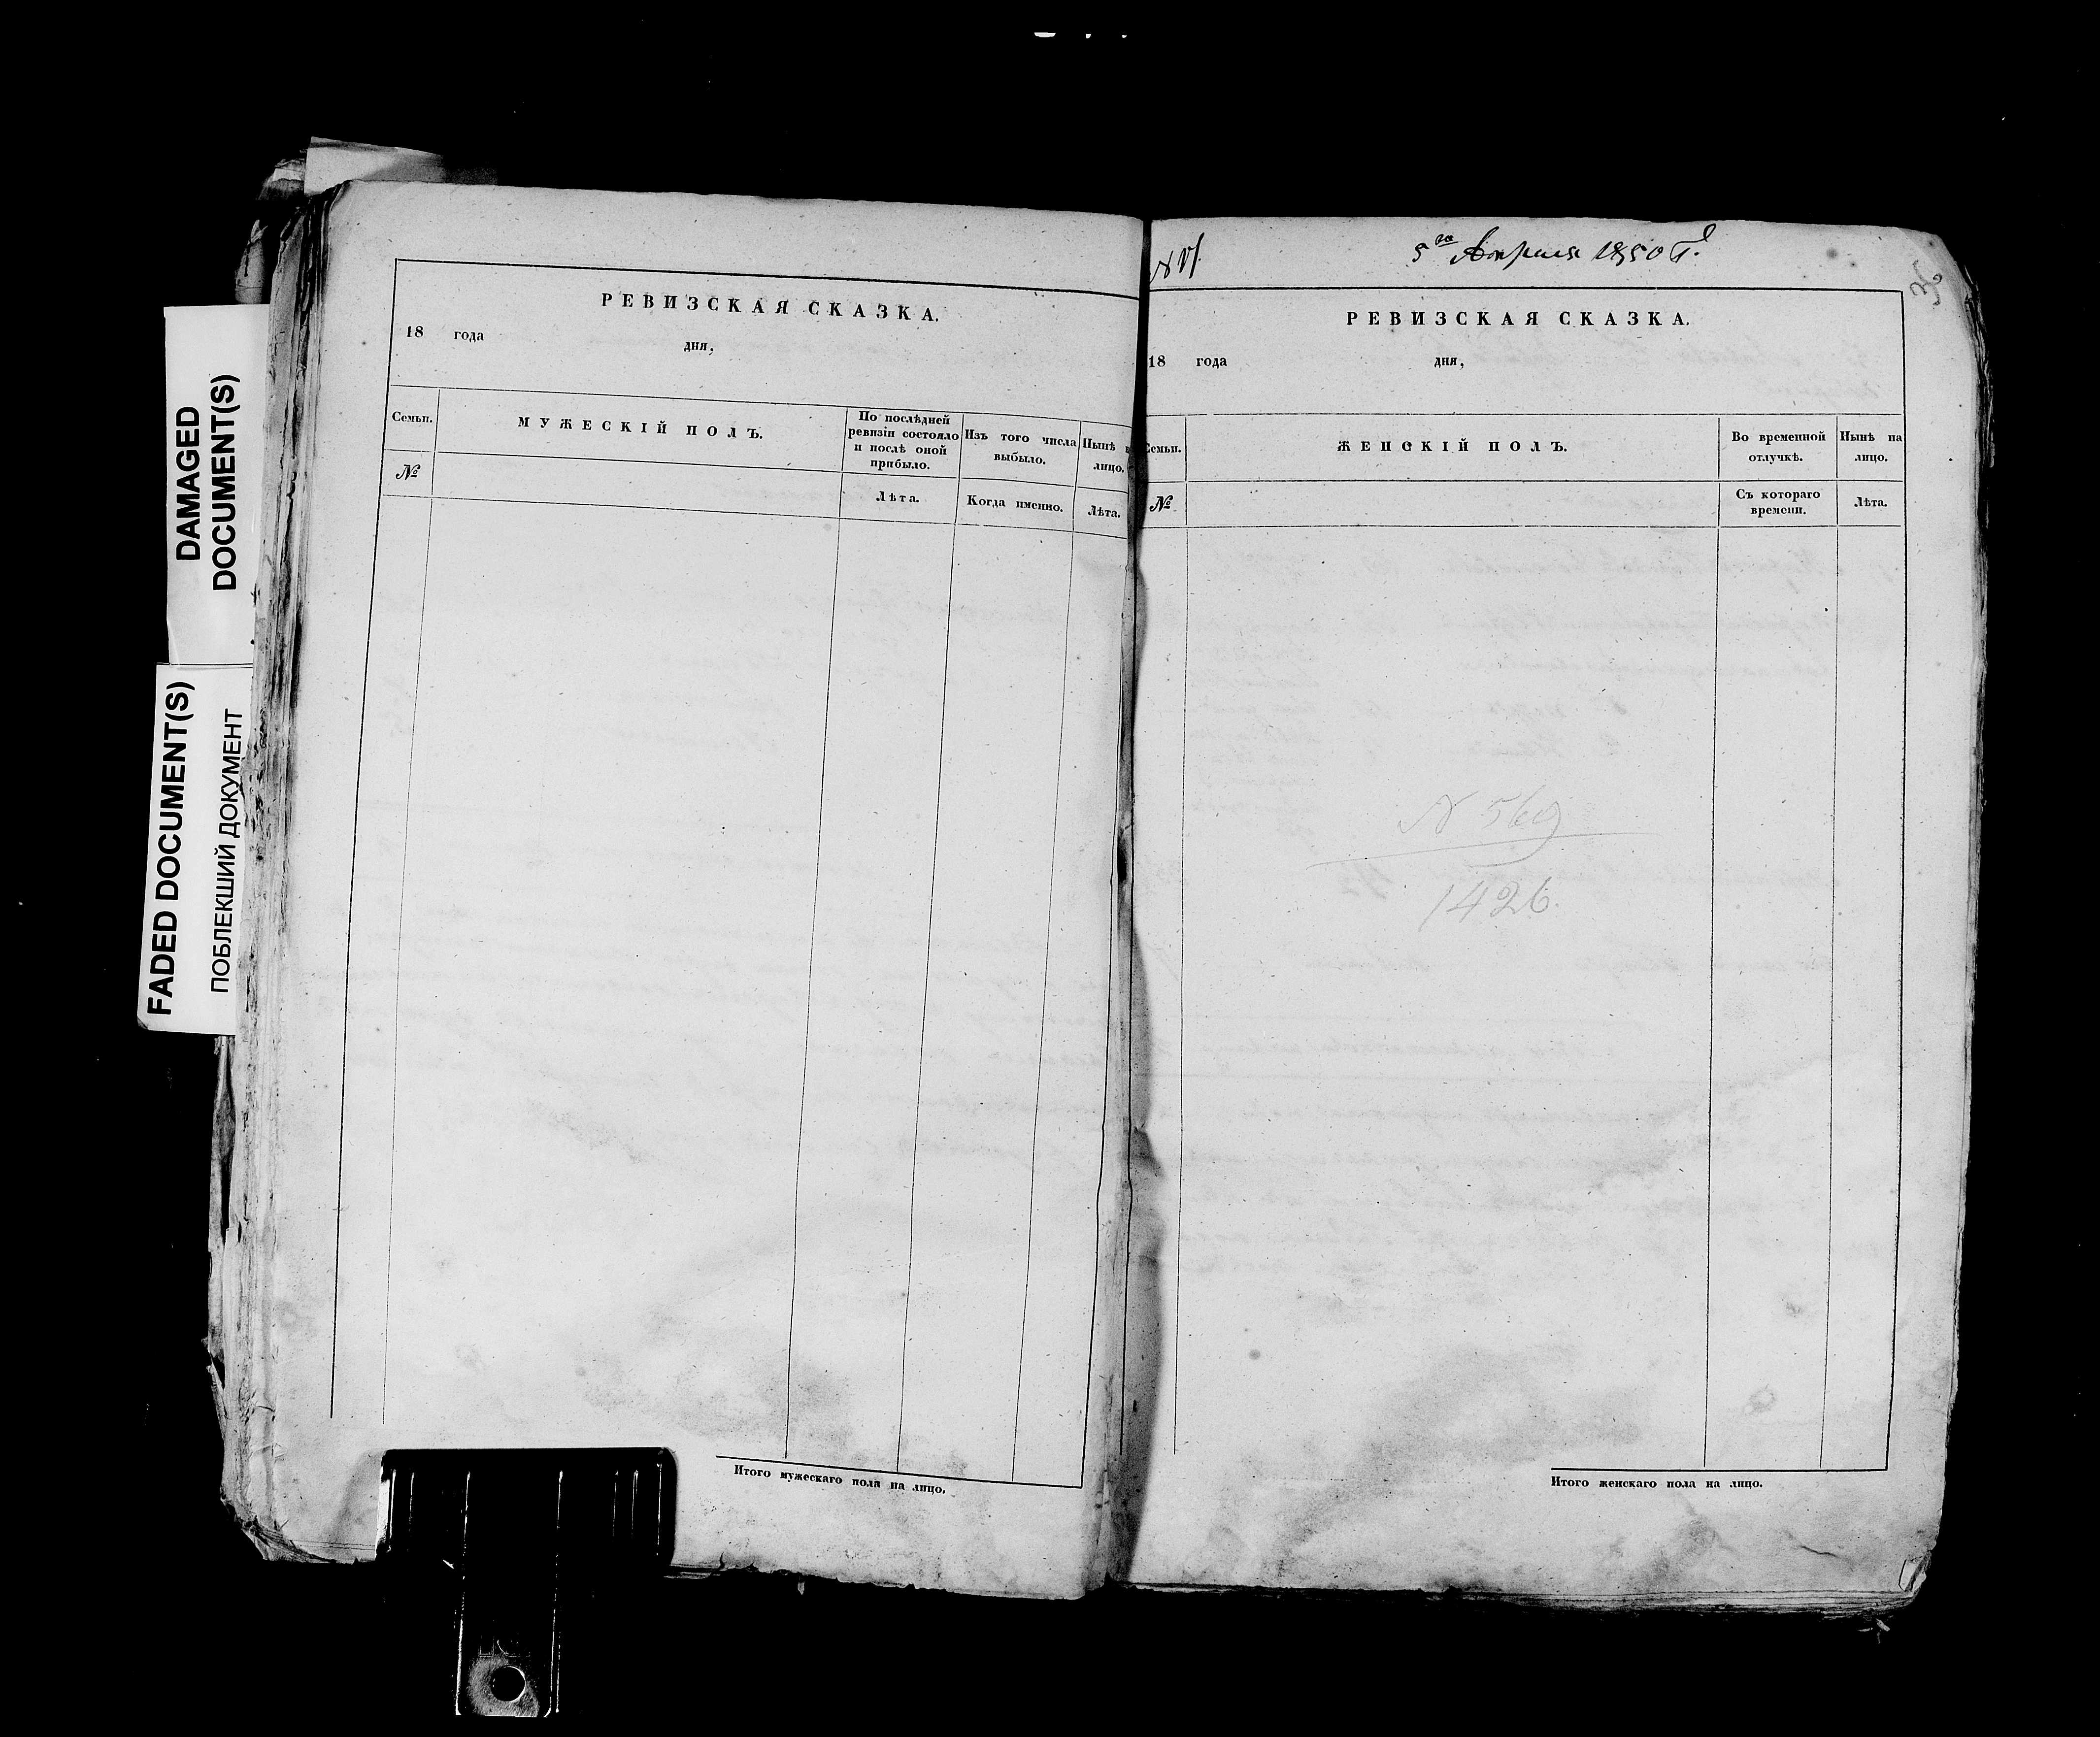 DAMAGED
DOCUMENT(S)
FADED DOCUMENT(S)
ПОБЛЕКШИЙ ДОКУМЕНТ
РЕВИЗСКАЯ СКАЗКА.
18 года дня,
Семьи. МУЖЕСКІЙ ПОЛЪ. По послѣдней ревизіи состояло и послѣ оной прибыло. Изъ того числа выбыло. Нынѣ лицо.
№ Лѣта. Когда именно. Лѣта.
Итого мужескаго пола на лицо.
5го Апреля 1850 г.
РЕВИЗСКАЯ СКАЗКА.
18 года дня,
Семьи. ЖЕНСКІЙ ПОЛЪ. Во временной отлучкѣ. Нынѣ на лицо.
№ Съ котораго времени. Лѣта.
N 569
1426.
Итого женскаго пола на лицо.